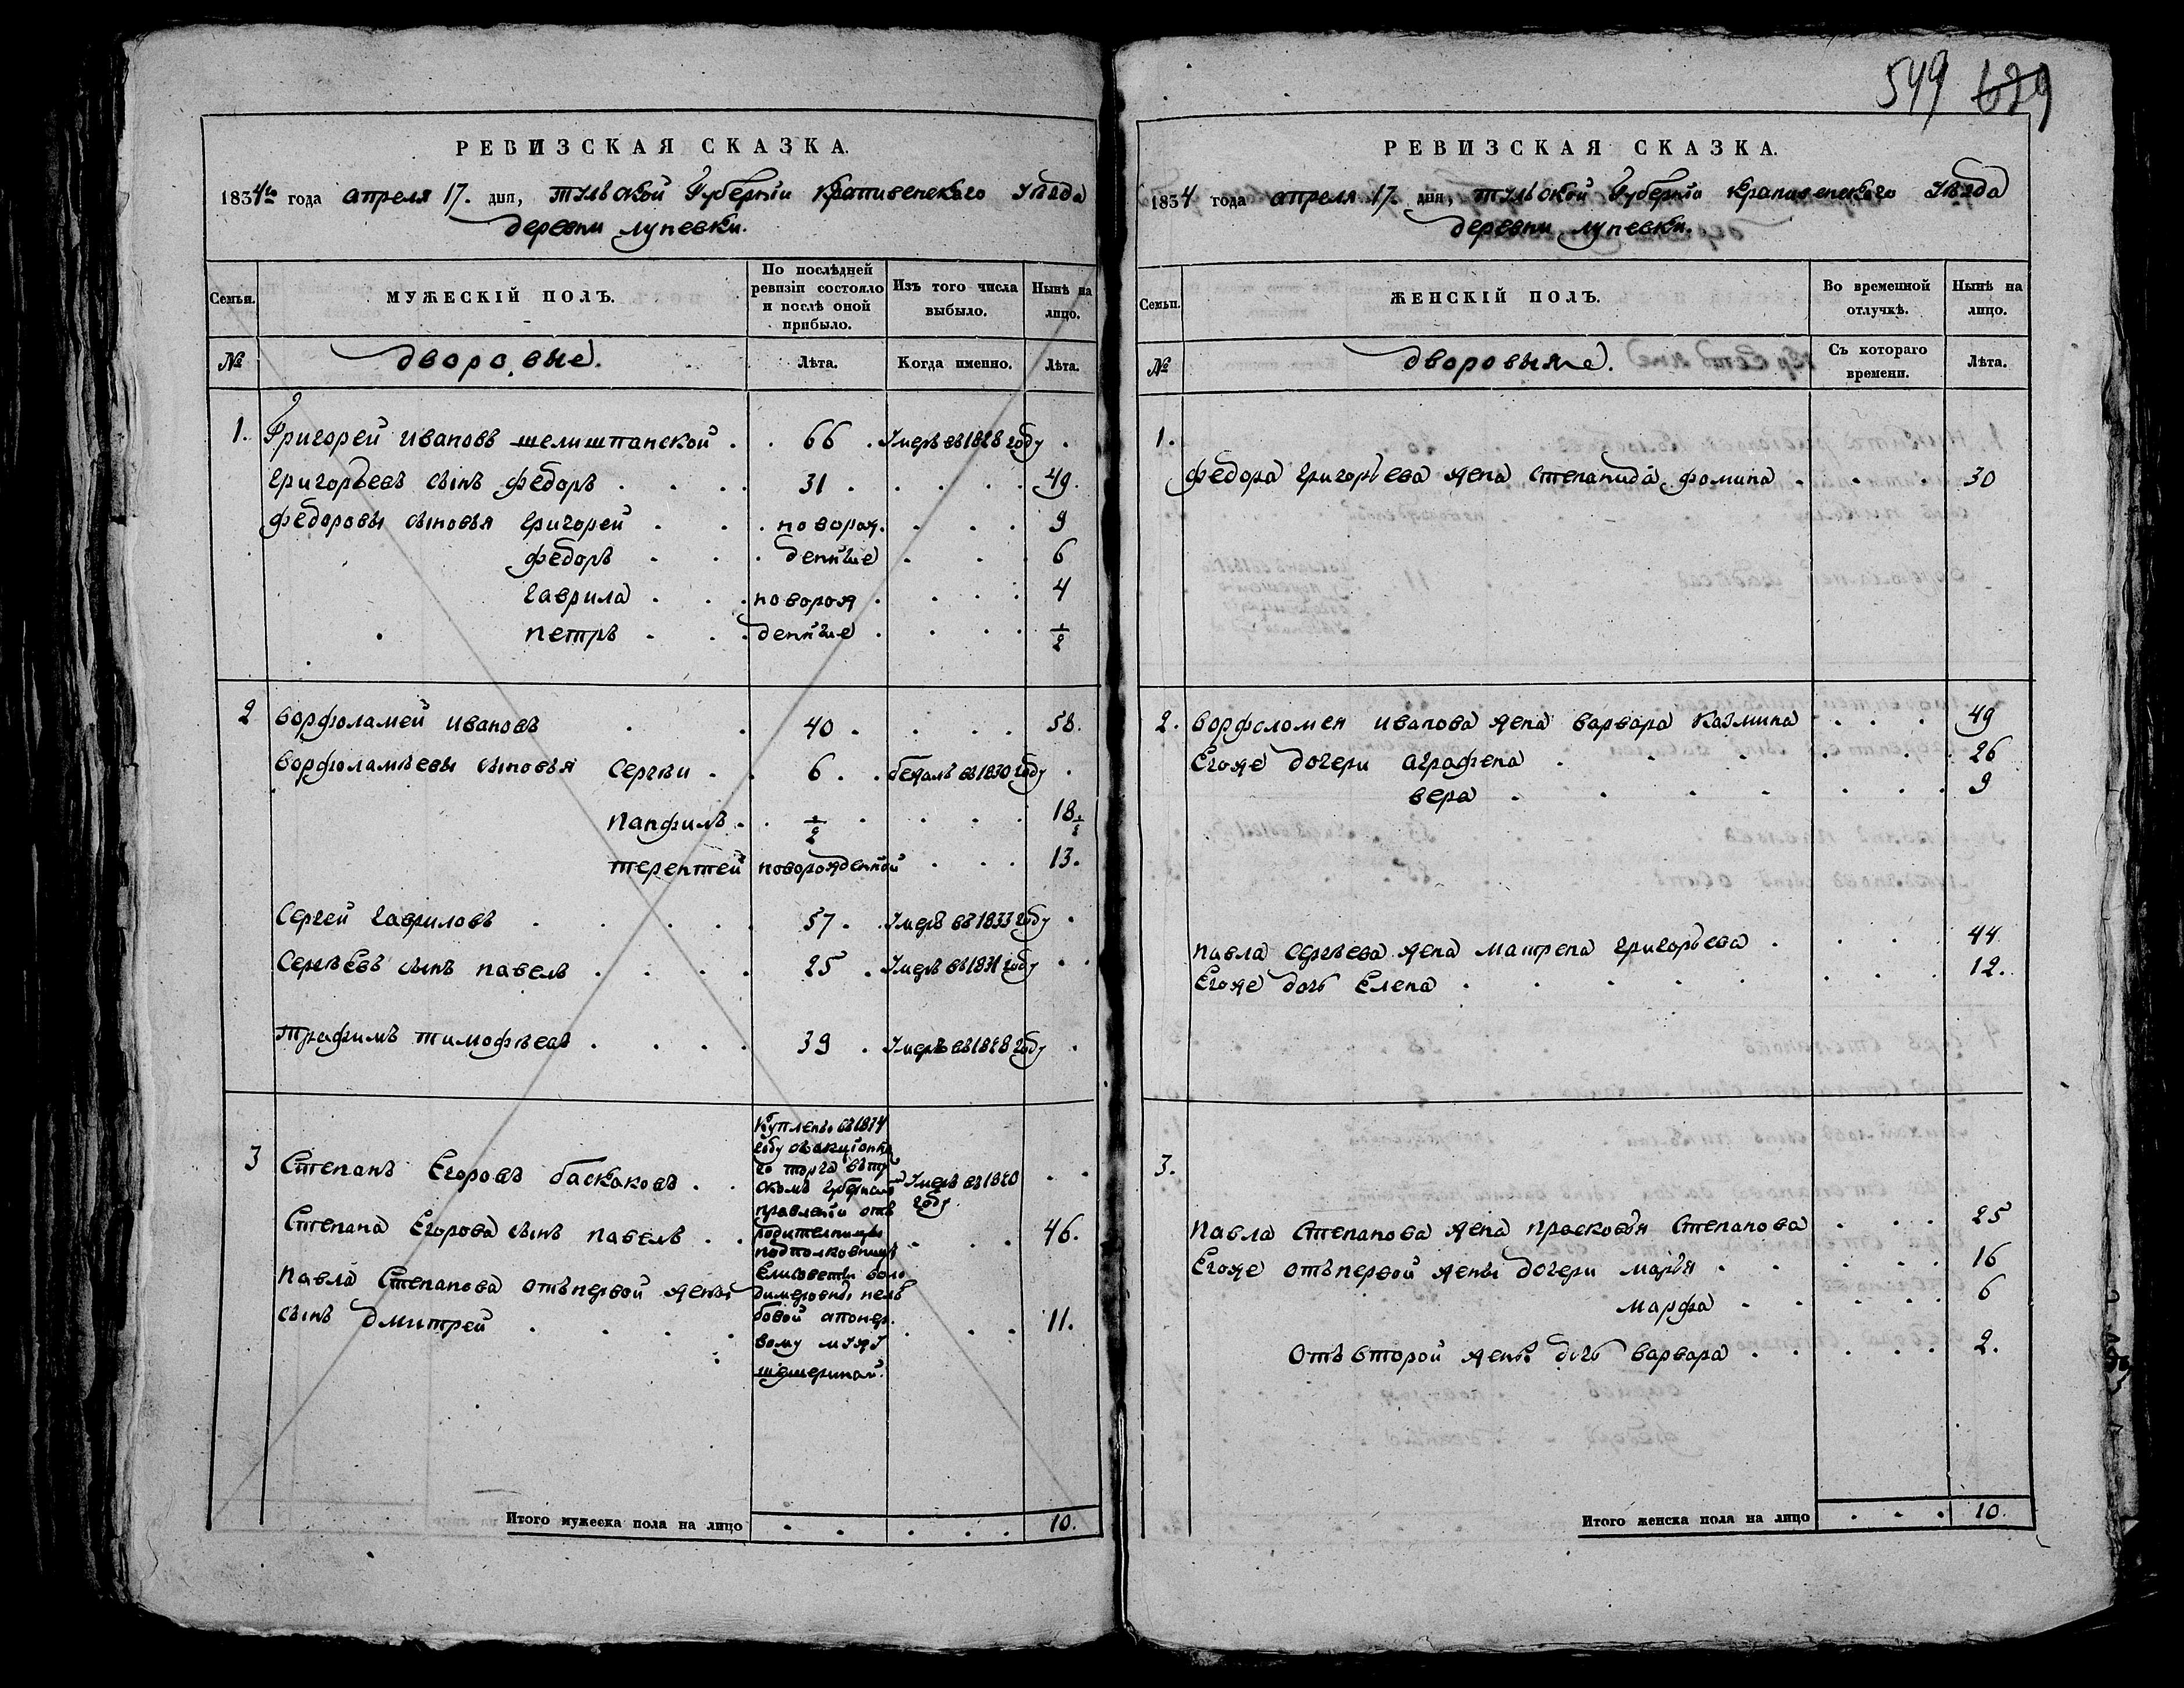 РЕВИЗСКАЯ СКАЗКА.
1834го года апреля 17. дня, тульской Губернiи крапивенскаго Уезда
деревни луневки.
Семьи. МУЖЕСКIЙ ПОЛЪ. По послѣдней ревизiи состояло и послѣ оной прибыло. Изъ того числа выбыло. Нынѣ на лицо.
№ дворовые. Лѣта. Когда именно. Лѣта.
1. Григорей ивановъ 66 Умеръ въ 1828 году
григорьевъ сынъ федоръ 31 49.
федоровы сыновья григорей новорож. 9
федоръ денные 6
гаврила новорож 4
петръ денные 1/2
2 ворфоламей ивановъ 40 58.
ворфоламѣевы сыновья Сергѣи 6 бежалъ въ 1830 году
панфилъ 1/2 18 1/2
терентей новорожденной 13.
Сергей гавриловъ 57 Умеръ въ 1833 году
Сергѣевъ сынъ павелъ 25 Умеръ въ 1831 году
Трафимъ тимофѣевъ 39 Умеръ въ 1828 году
3 Степанъ Егоровъ баскаковъ Умеръ въ 1820 году
Степана Егорова сынъ павелъ 46.
павла Степанова отъ первой жены
сынъ дмитрей 11.
Купленъ въ
году съ акцiонна
го торга въ
скомъ губернско
правленiи отъ
подполковницы
Елисоветы воло
димеровны
бовой
вому мужу
Итого мужеска пола на лицо 10.
549
РЕВИЗСКАЯ СКАЗКА.
1834 года апреля 17 дня, тульской Губернiи крапивенскаго Уезда
деревни луневки.
Семьи. ЖЕНСКIЙ ПОЛЪ. Во временной отлучкѣ. Нынѣ на лицо.
№ дворовыяе. Съ котораго времени. Лѣта.
1.
федора григорьева жена Степанида фомина 30
2. ворфоломея иванова жена варвара казмина 49
Егоже дочери аграфена 26
вера 9
павла сергѣева жена матрена григорьева 44
Егоже дочь Елена 12.
3.
павла Степанова жена прасковья Степанова 25
Егоже отъ первой жены дочери марья 16
марфа 6
отъ второй жены дочь варвара 2.
Итого женска пола на лицо 10.